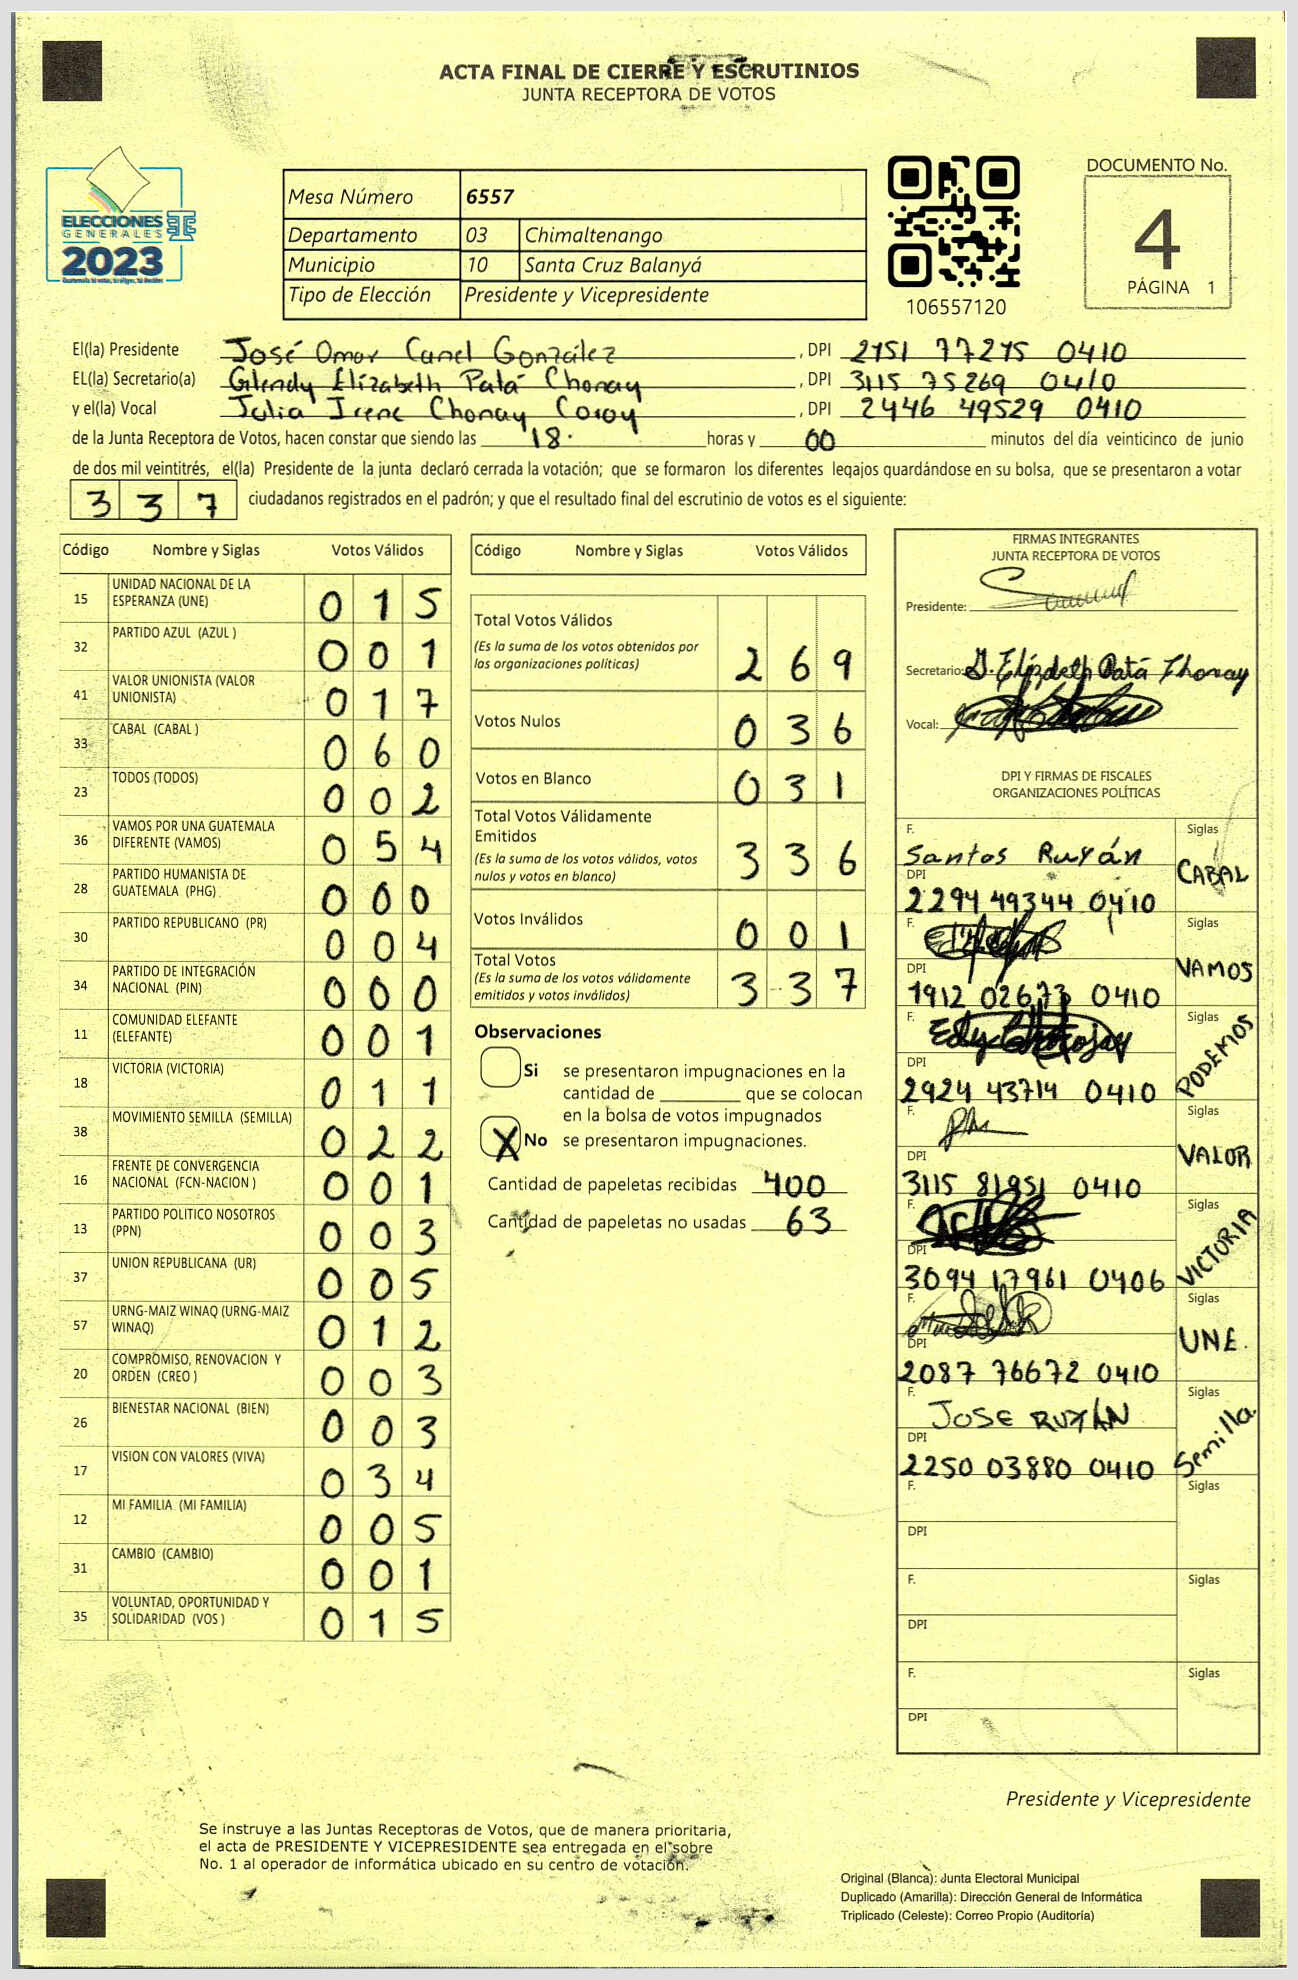 ACTA FINAL DE CIERRE Y ESCRUTINIOS
JUNTA RECEPTORA DE VOTOS
ELECCIONES
GENERALES
2023
Mesa Número 6557
Departamento 03 Chimaltenango
Municipio 10 Santa Cruz Balanyá
Tipo de Elección Presidente y Vicepresidente
106557120
DOCUMENTO No.
4
PÁGINA 1
El(la) Presidente José Omar Canel González , DPI 2151 77275 0410
EL(la) Secretario(a) Glendy Elizabeth Patá Chonay , DPI 3115 75269 0410
y el(la) Vocal Julia Irene Chonay Coroy , DPI 2446 49529 0410
de la Junta Receptora de Votos, hacen constar que siendo las 18. horas y 00 minutos del día veinticinco de junio
de dos mil veintitrés, el(la) Presidente de la junta declaró cerrada la votación; que se formaron los diferentes legajos guardándose en su bolsa, que se presentaron a votar
337 ciudadanos registrados en el padrón; y que el resultado final del escrutinio de votos es el siguiente:
Código Nombre y Siglas Votos Válidos
15 UNIDAD NACIONAL DE LA ESPERANZA (UNE) 015
32 PARTIDO AZUL (AZUL ) 001
41 VALOR UNIONISTA (VALOR UNIONISTA) 017
33 CABAL (CABAL ) 060
23 TODOS (TODOS) 002
36 VAMOS POR UNA GUATEMALA DIFERENTE (VAMOS) 054
28 PARTIDO HUMANISTA DE GUATEMALA (PHG) 000
30 PARTIDO REPUBLICANO (PR) 004
34 PARTIDO DE INTEGRACIÓN NACIONAL (PIN) 000
11 COMUNIDAD ELEFANTE (ELEFANTE) 001
18 VICTORIA (VICTORIA) 011
38 MOVIMIENTO SEMILLA (SEMILLA) 022
16 FRENTE DE CONVERGENCIA NACIONAL (FCN-NACION ) 001
13 PARTIDO POLITICO NOSOTROS (PPN) 003
37 UNION REPUBLICANA (UR) 005
57 URNG-MAIZ WINAQ (URNG-MAIZ WINAQ) 012
20 COMPROMISO, RENOVACION Y ORDEN (CREO ) 003
26 BIENESTAR NACIONAL (BIEN) 003
17 VISION CON VALORES (VIVA) 034
12 MI FAMILIA (MI FAMILIA) 005
31 CAMBIO (CAMBIO) 001
35 VOLUNTAD, OPORTUNIDAD Y SOLIDARIDAD (VOS ) 015
Código Nombre y Siglas Votos Válidos
Total Votos Válidos 269
(Es la suma de los votos obtenidos por
las organizaciones políticas)
Votos Nulos 036
Votos en Blanco 031
Total Votos Válidamente
Emitidos 336
(Es la suma de los votos válidos, votos
nulos y votos en blanco)
Votos Inválidos 001
Total Votos 337
(Es la suma de los votos válidamente
emitidos y votos inválidos)
Observaciones
Si se presentaron impugnaciones en la
cantidad de ________ que se colocan
en la bolsa de votos impugnados
X No se presentaron impugnaciones.
Cantidad de papeletas recibidas 400
Cantidad de papeletas no usadas 63
FIRMAS INTEGRANTES
JUNTA RECEPTORA DE VOTOS
Presidente:
Secretario: G. Elizabeth Patá Chonay
Vocal:
DPI Y FIRMAS DE FISCALES
ORGANIZACIONES POLÍTICAS
F. Santos Ruyán Siglas CABAL
DPI 2294 49344 0410
F. Siglas VAMOS
DPI 1912 02673 0410
F. Siglas PODEMOS
DPI 2924 43714 0410
F. Siglas VALOR
DPI 3115 81951 0410
F. Siglas VICTORIA
DPI 3094 17961 0406
F. Siglas UNE.
DPI 2087 76672 0410
F. JOSE RUYÁN Siglas Semilla
DPI 2250 03880 0410
F. Siglas
DPI
F. Siglas
DPI
F. Siglas
DPI
Presidente y Vicepresidente
Se instruye a las Juntas Receptoras de Votos, que de manera prioritaria,
el acta de PRESIDENTE Y VICEPRESIDENTE sea entregada en el sobre
No. 1 al operador de informática ubicado en su centro de votación.
Original (Blanca): Junta Electoral Municipal
Duplicado (Amarilla): Dirección General de Informática
Triplicado (Celeste): Correo Propio (Auditoría)